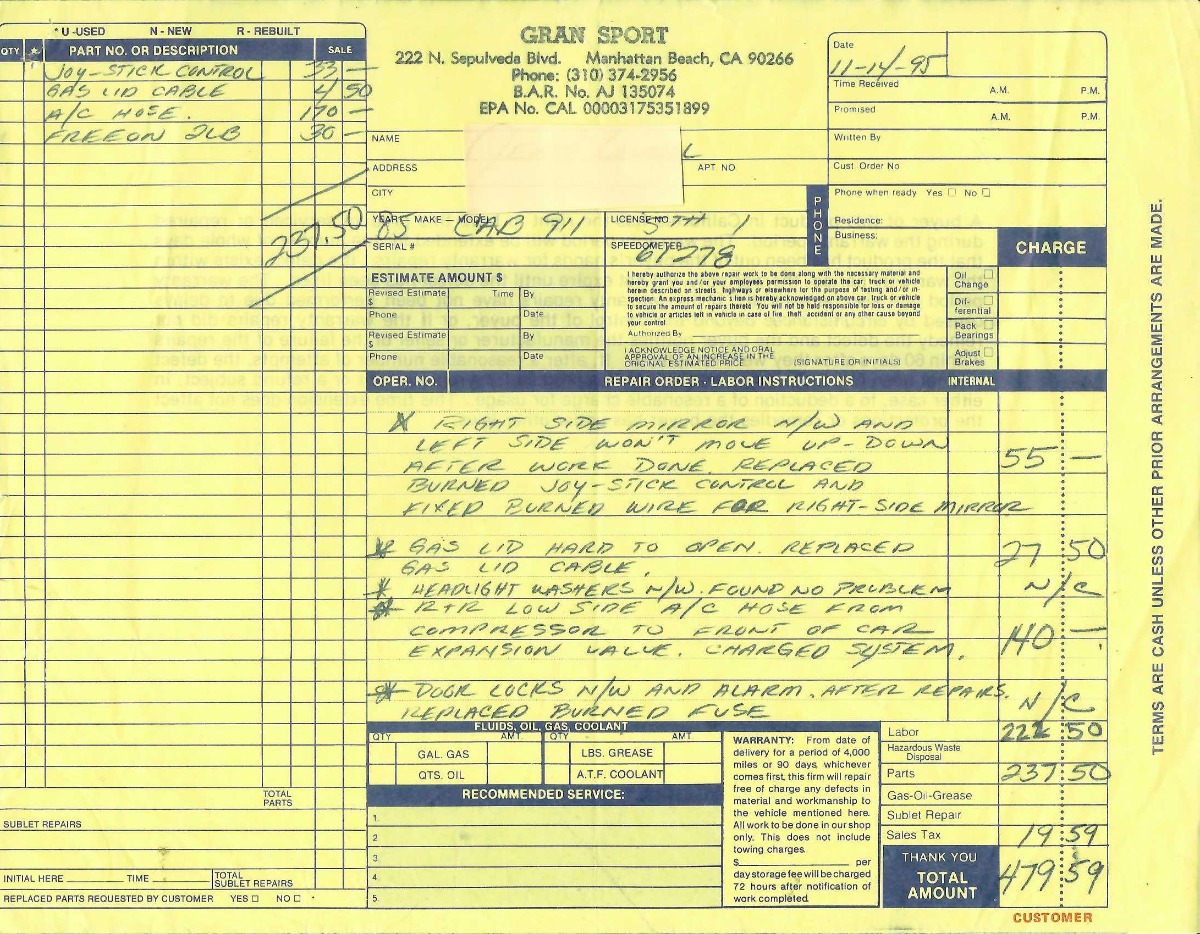 * U -USED N - NEW R - REBUILT
QTY * PART NO. OR DESCRIPTION SALE
JOY-STICK CONTROL 33 —
GAS LID CABLE 4 50
A/C HOSE. 170 —
FREEON 2LB 30 —
237.50
TOTAL PARTS
SUBLET REPAIRS
INITIAL HERE TIME TOTAL SUBLET REPAIRS
REPLACED PARTS REQUESTED BY CUSTOMER YES NO
GRAN SPORT
222 N. Sepulveda Blvd. Manhattan Beach, CA 90266
Phone: (310) 374-2956
B.A.R. No. AJ 135074
EPA No. CAL 00003175351899
NAME
ADDRESS APT. NO
CITY
YEAR - MAKE - MODEL 85 CAB 911 LICENSE NO
SERIAL # SPEEDOMETER 67278
Date 11-14-95
Time Received A.M. P.M.
Promised A.M. P.M.
Written By
Cust. Order No
Phone when ready Yes No
PHONE
Residence:
Business:
CHARGE
ESTIMATE AMOUNT $
Revised Estimate $ Time By
Phone Date
Revised Estimate $ By
Phone Date
I hereby authorize the above repair work to be done along with the necessary material and
hereby grant you and/or your employees permission to operate the car, truck or vehicle
herein described on streets, highways or elsewhere for the purpose of testing and/or in-
spection. An express mechanic's lien is hereby acknowledged on above car, truck or vehicle
to secure the amount of repairs thereto. You will not be held responsible for loss or damage
to vehicle or articles left in vehicle in case of fire, theft, accident or any other cause beyond
your control.
Authorized By
I ACKNOWLEDGE NOTICE AND ORAL
APPROVAL OF AN INCREASE IN THE
ORIGINAL ESTIMATED PRICE (SIGNATURE OR INITIALS)
Oil Change
Differential
Pack Bearings
Adjust Brakes
OPER. NO. REPAIR ORDER - LABOR INSTRUCTIONS INTERNAL
* RIGHT SIDE MIRROR N/W AND
LEFT SIDE WON'T MOVE UP-DOWN
AFTER WORK DONE. REPLACED 55 —
BURNED JOY-STICK CONTROL AND
FIXED BURNED WIRE FOR RIGHT-SIDE MIRROR
* GAS LID HARD TO OPEN. REPLACED 27 50
GAS LID CABLE.
* HEADLIGHT WASHERS N/W. FOUND NO PROBLEM N/C
* R+R LOW SIDE A/C HOSE FROM
COMPRESSOR TO FRONT OF CAR 140 —
EXPANSION VALVE. CHARGED SYSTEM.
* DOOR LOCKS N/W AND ALARM. AFTER REPAIRS. N/C
REPLACED BURNED FUSE
FLUIDS, OIL, GAS, COOLANT
QTY AMT. QTY AMT
GAL. GAS LBS. GREASE
QTS. OIL A.T.F. COOLANT
RECOMMENDED SERVICE:
1.
2
3.
4.
5.
WARRANTY: From date of
delivery for a period of 4,000
miles or 90 days, whichever
comes first, this firm will repair
free of charge any defects in
material and workmanship to
the vehicle mentioned here.
All work to be done in our shop
only. This does not include
towing charges.
$ per
day storage fee will be charged
72 hours after notification of
work completed.
Labor 222 50
Hazardous Waste Disposal
Parts 237 50
Gas-Oil-Grease
Sublet Repair
Sales Tax 19 59
THANK YOU
TOTAL AMOUNT 479 59
CUSTOMER
TERMS ARE CASH UNLESS OTHER PRIOR ARRANGEMENTS ARE MADE.